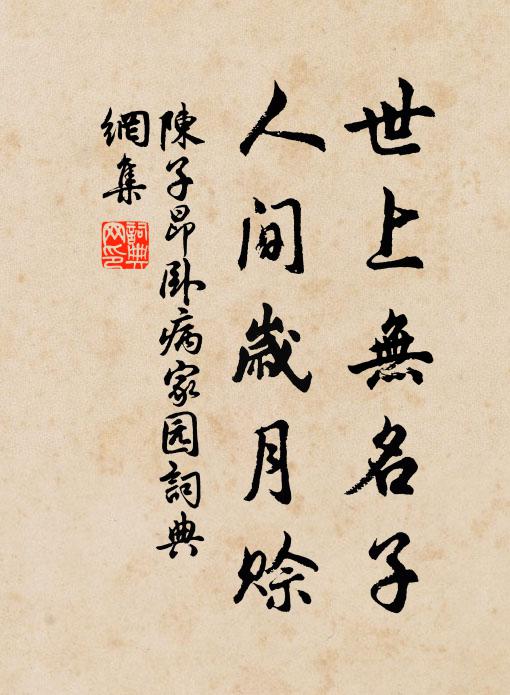 世上無名子
人间歲月賒
陳子昂卧病家园詞典
網集
詞典
网印